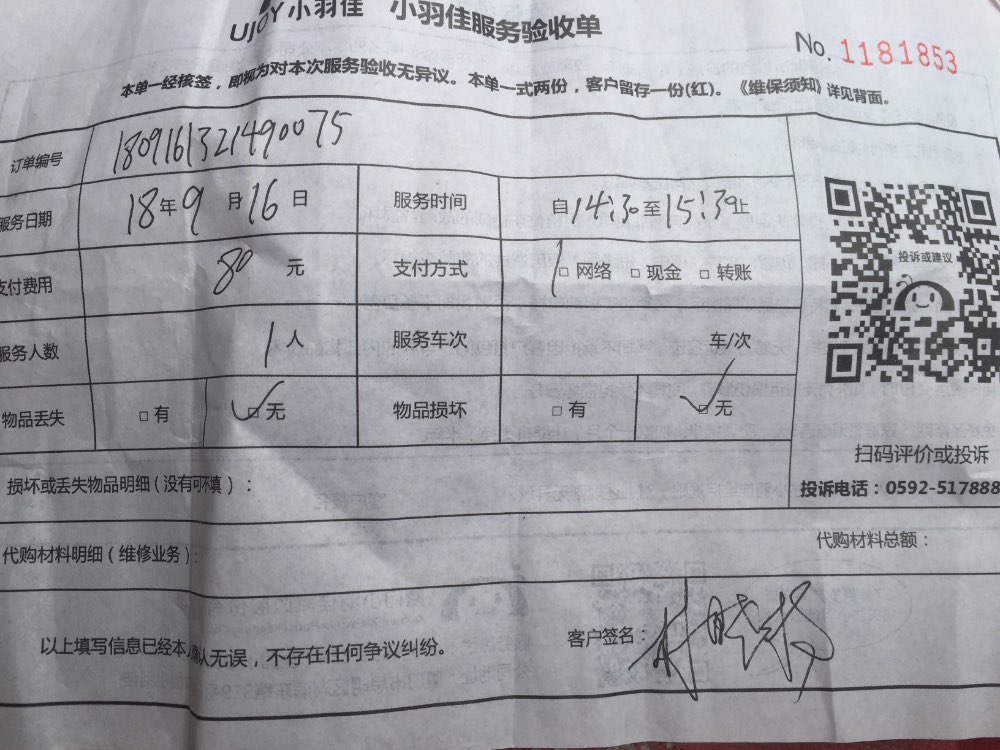 UJOY小羽佳 小羽佳服务验收单
No. 1181853
本单一经核签，即视为对本次服务验收无异议。本单一式两份，客户留存一份(红)。《维保须知》详见背面。
订单编号 1809161321490075
服务日期 18年9月16日 服务时间 自14:30至15:30止
支付费用 80元 支付方式 □网络 □现金 □转账
服务人数 1人 服务车次 车/次
物品丢失 □有 □无 物品损坏 □有 □无
投诉或建议
扫码评价或投诉
投诉电话：0592-517888
损坏或丢失物品明细(没有可不填)：
代购材料明细(维修业务)： 代购材料总额：
以上填写信息已经本人确认无误，不存在任何争议纠纷。 客户签名：